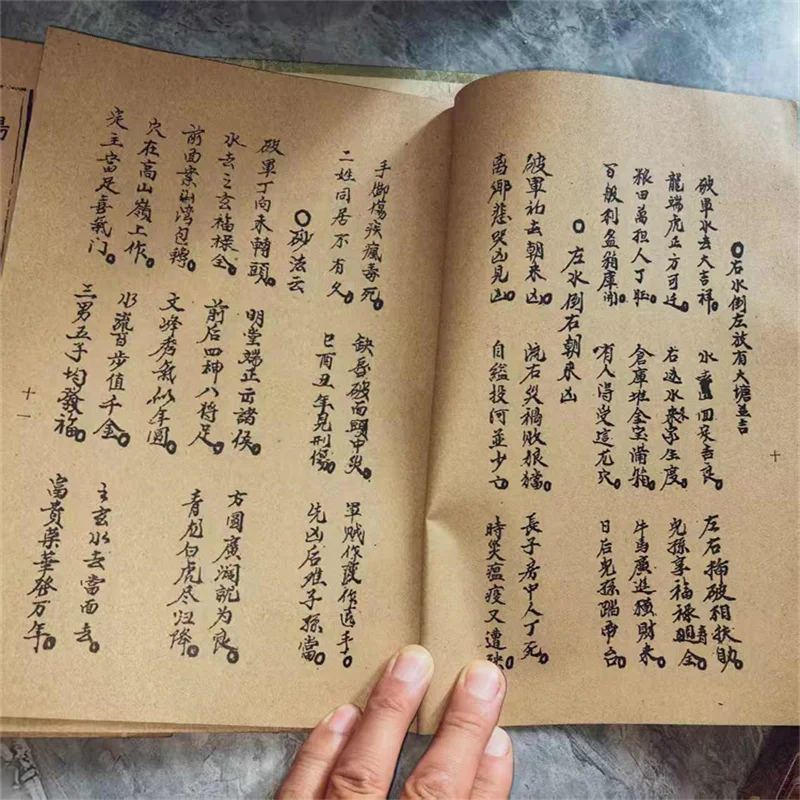 ○右水倒左放有大塘並吉
破軍水去大吉祥。 水去囬去良。 左右破相扶助
龍端虎正方可迁 右边水来生度 兒孫享福禄壽全
粮田萬担人丁旺 倉庫堆金宝滿箱。 牛馬廣進積財来
百般利益箱庫開。 有人得受這龙穴。 日后兒孫踏帝台
○左水倒右朝来凶
破軍初去朝来凶。 流右災禍敗狼 長子房中人丁死。
离鄉悲哭凶見凶。 自縊投河並少亡。 時災瘟疫又遭殃。
十
手脚傷疾瘋毒死 缺唇破面眼中災。 軍賊作護作逃手。
二姓同居不有久。 巳酉丑年見刑傷。 先凶后难子孫當。
○砂法云
破軍丁向未轉頭。 明堂端正云諸侯。 方圓廣濶説为良。
水去之玄福禄全。 前后四神八将足。 青龙白虎尽归降。
前面案山湾包轉。 文峰秀氣似年圓。
穴在高山嶺上作。 水流百步值千金。 之玄水去當面去。
定主富足喜氣门。 三男五子均發福。 富貴荣華發万年。
十一